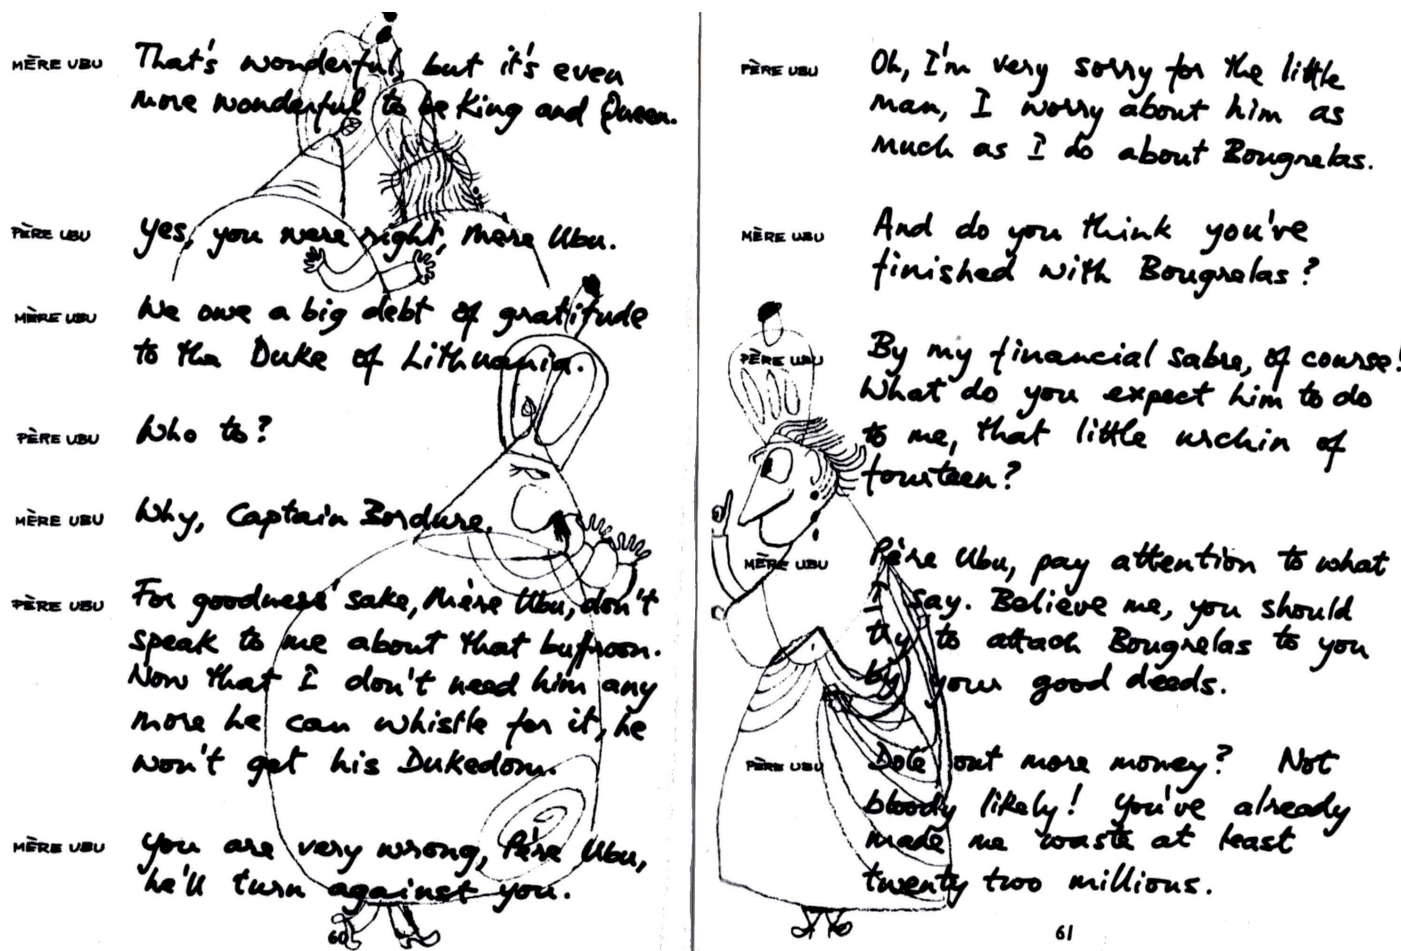 MÈRE UBU That's wonderful, but it's even
more wonderful to be King and Queen.
PÈRE UBU Yes, you were right, Mère Ubu.
MÈRE UBU We owe a big debt of gratitude
to the Duke of Lithuania.
PÈRE UBU Who to?
MÈRE UBU Why, Captain Bordure.
PÈRE UBU For goodness' sake, Mère Ubu, don't
speak to me about that buffoon.
Now that I don't need him any
more he can whistle for it, he
won't get his Dukedom.
MÈRE UBU You are very wrong, Père Ubu,
he'll turn against you.
60
PÈRE UBU Oh, I'm very sorry for the little
man, I worry about him as
much as I do about Bougrelas.
MÈRE UBU And do you think you've
finished with Bougrelas?
PÈRE UBU By my financial sabre, of course!
What do you expect him to do
to me, that little urchin of
fourteen?
MÈRE UBU Père Ubu, pay attention to what
I say. Believe me, you should
try to attach Bougrelas to you
by your good deeds.
PÈRE UBU Dole out more money? Not
bloody likely! You've already
made me waste at least
twenty two millions.
61